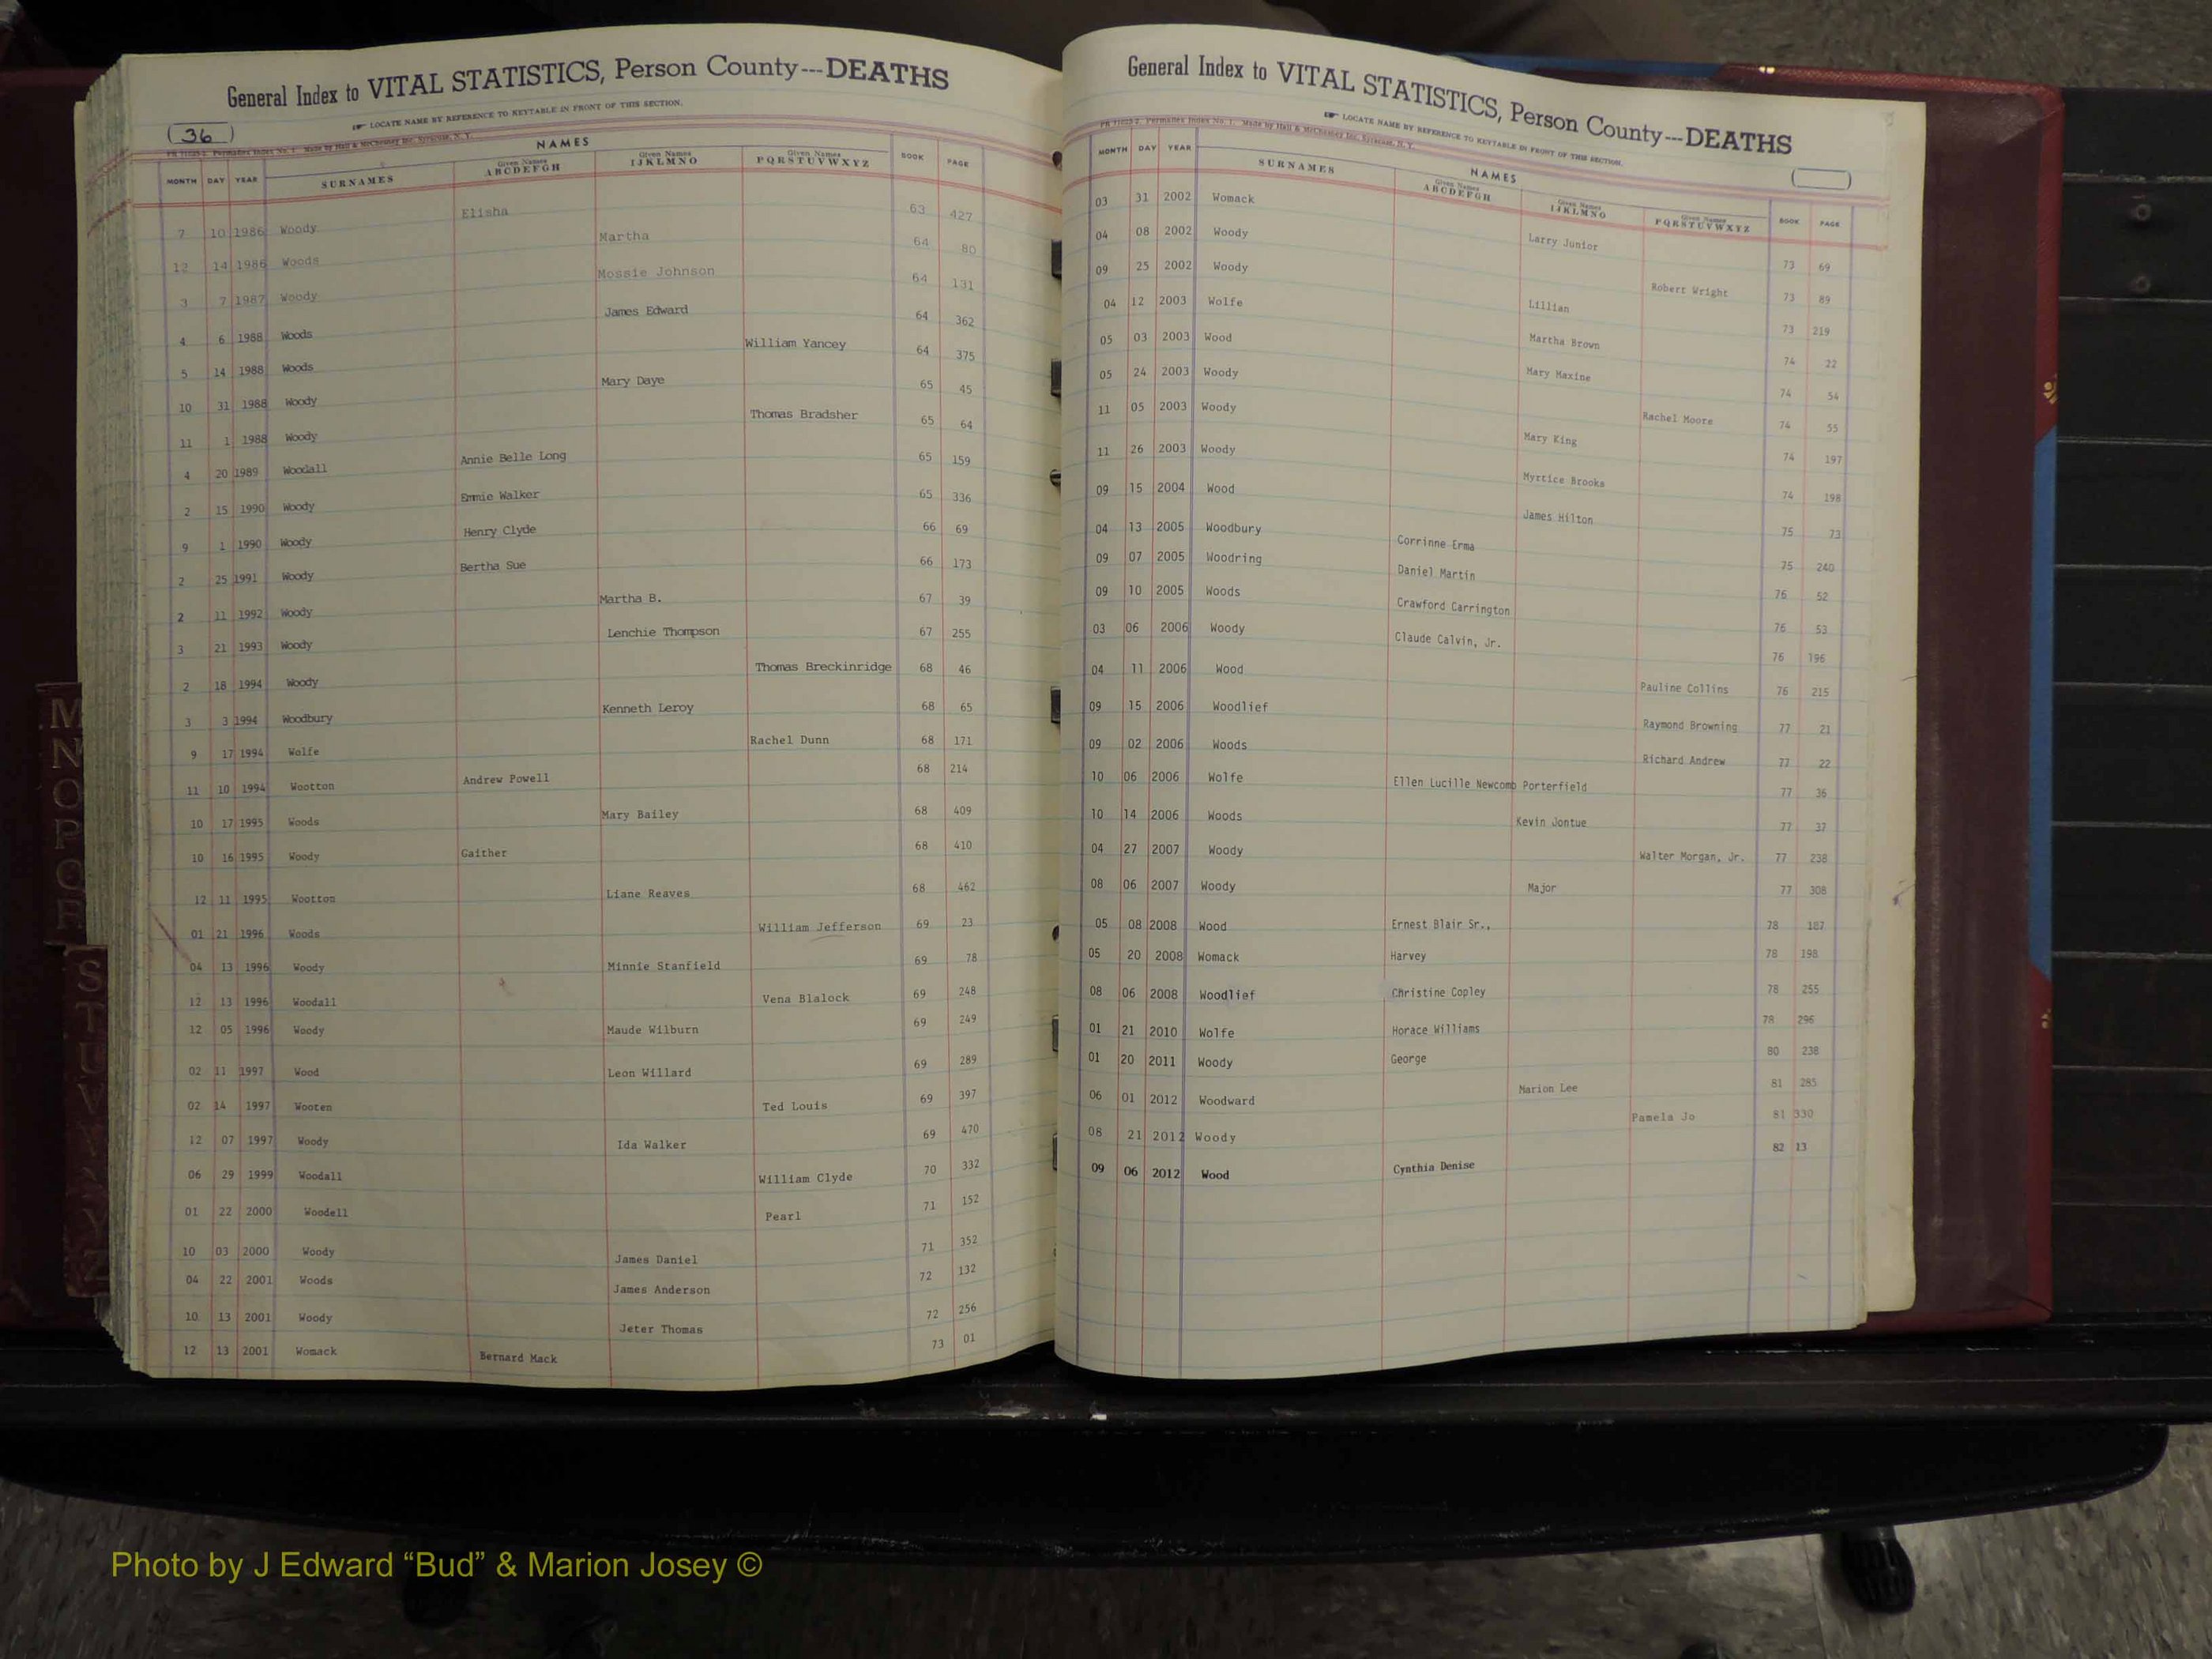 General Index to VITAL STATISTICS, Person County---DEATHS
LOCATE NAME BY REFERENCE TO KEYTABLE IN FRONT OF THIS SECTION.
36
NAMES
MONTH DAY YEAR SURNAMES Given Names ABCDEFGH Given Names IJKLMNO Given Names PQRSTUVWXYZ BOOK PAGE
7 10 1986 Woody Elisha 63 427
12 14 1986 Woods Martha 64 80
3 7 1987 Woody Mossie Johnson 64 131
4 6 1988 Woods James Edward 64 362
5 14 1988 Woods William Yancey 64 375
10 31 1988 Woody Mary Daye 65 45
11 1 1988 Woody Thomas Bradsher 65 64
4 20 1989 Woodall Annie Belle Long 65 159
2 15 1990 Woody Emmie Walker 65 336
9 1 1990 Woody Henry Clyde 66 69
2 25 1991 Woody Bertha Sue 66 173
2 11 1992 Woody Martha B. 67 39
3 21 1993 Woody Lenchie Thompson 67 255
2 18 1994 Woody Thomas Breckinridge 68 46
3 3 1994 Woodbury Kenneth Leroy 68 65
9 17 1994 Wolfe Rachel Dunn 68 171
11 10 1994 Wootton Andrew Powell 68 214
10 17 1995 Woods Mary Bailey 68 409
10 16 1995 Woody Gaither 68 410
12 11 1995 Wootton Liane Reaves 68 462
01 21 1996 Woods William Jefferson 69 23
04 13 1996 Woody Minnie Stanfield 69 78
12 13 1996 Woodall Vena Blalock 69 248
12 05 1996 Woody Maude Wilburn 69 249
02 11 1997 Wood Leon Willard 69 289
02 14 1997 Wooten Ted Louis 69 397
12 07 1997 Woody Ida Walker 69 470
06 29 1999 Woodall William Clyde 70 332
01 22 2000 Woodell Pearl 71 152
10 03 2000 Woody James Daniel 71 352
04 22 2001 Woods James Anderson 72 132
10 13 2001 Woody Jeter Thomas 72 256
12 13 2001 Womack Bernard Mack 73 01
General Index to VITAL STATISTICS, Person County---DEATHS
LOCATE NAME BY REFERENCE TO KEYTABLE IN FRONT OF THIS SECTION.
NAMES
MONTH DAY YEAR SURNAMES Given Names ABCDEFGH Given Names IJKLMNO Given Names PQRSTUVWXYZ BOOK PAGE
03 31 2002 Womack Larry Junior 73 69
04 08 2002 Woody Robert Wright 73 89
09 25 2002 Woody Lillian 73 219
04 12 2003 Wolfe Martha Brown 74 22
05 03 2003 Wood Mary Maxine 74 54
05 24 2003 Woody Rachel Moore 74 55
11 05 2003 Woody Mary King 74 197
11 26 2003 Woody Myrtice Brooks 74 198
09 15 2004 Wood James Hilton 75 73
04 13 2005 Woodbury Corrinne Erma 75 240
09 07 2005 Woodring Daniel Martin 76 52
09 10 2005 Woods Crawford Carrington 76 53
03 06 2006 Woody Claude Calvin, Jr. 76 196
04 11 2006 Wood Pauline Collins 76 215
09 15 2006 Woodlief Raymond Browning 77 21
09 02 2006 Woods Richard Andrew 77 22
10 06 2006 Wolfe Ellen Lucille Newcomb Porterfield 77 36
10 14 2006 Woods Kevin Jontue 77 37
04 27 2007 Woody Walter Morgan, Jr. 77 238
08 06 2007 Woody Major 77 308
05 08 2008 Wood Ernest Blair Sr., 78 187
05 20 2008 Womack Harvey 78 198
08 06 2008 Woodlief Christine Copley 78 255
01 21 2010 Wolfe Horace Williams 78 296
01 20 2011 Woody George 80 238
06 01 2012 Woodward Marion Lee 81 285
08 21 2012 Woody Pamela Jo 81 330
09 06 2012 Wood Cynthia Denise 82 13
M
N
O
P
Q
S
T
U
V
Photo by J Edward “Bud” & Marion Josey ©